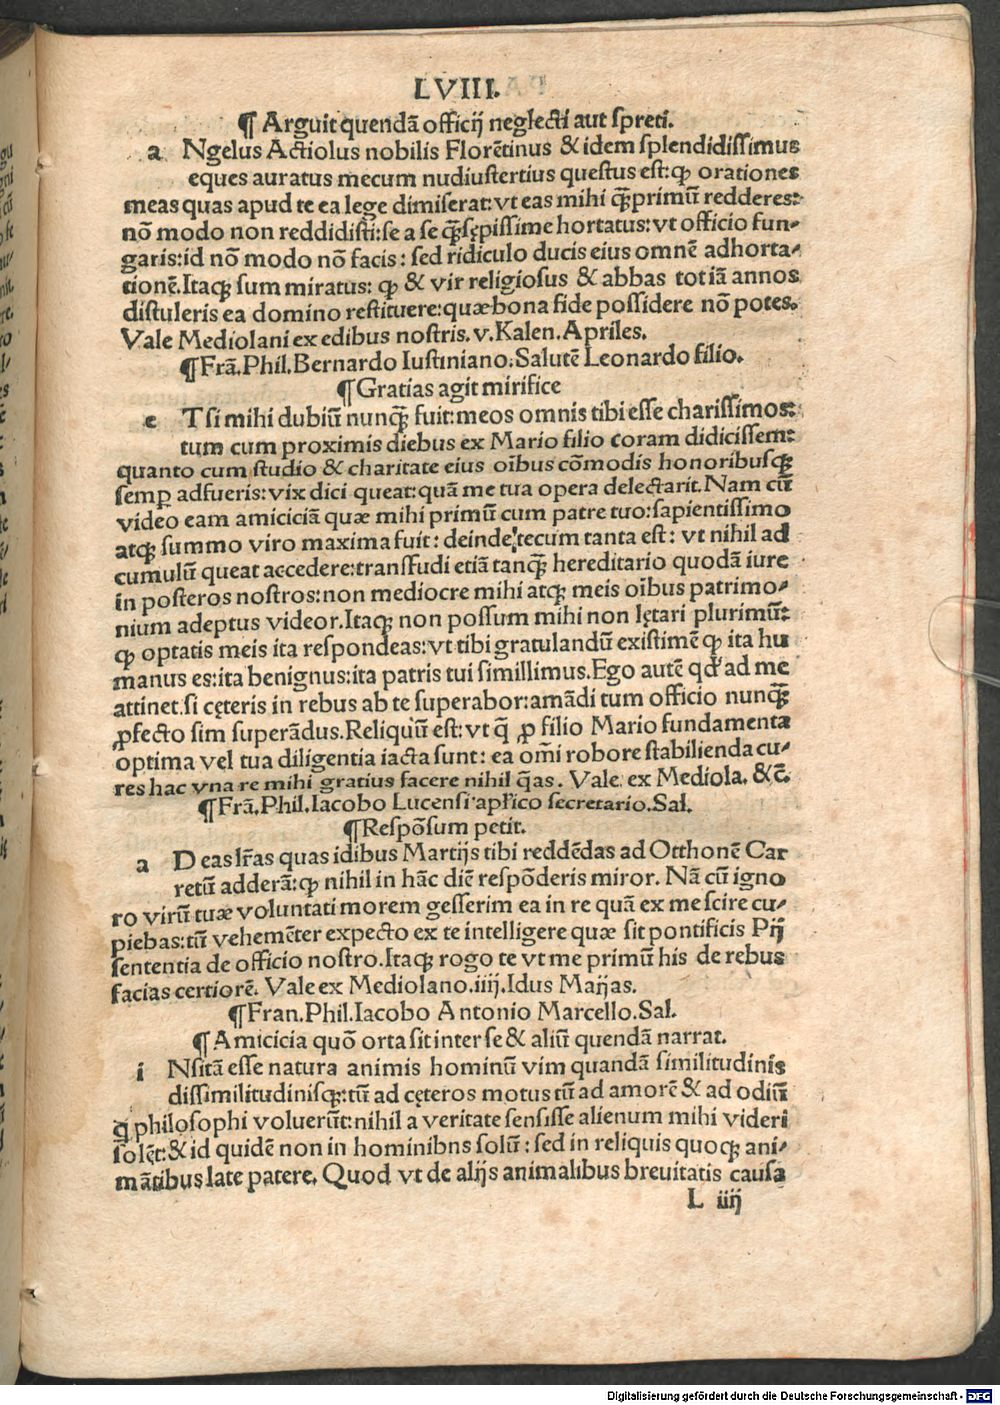 LVIII.
¶ Arguit quendã officij neglecti aut ſpreti.
a NGelus Actiolus nobilis Florẽtinus & idem ſplendidiſſimus
eques auratus mecum nudiuſtertius queſtus eſt: ꝙ orationes
meas quas apud te ea lege dimiſerat: vt eas mihi q̃primũ redderes:
nõ modo non reddidiſti: ſe a ſe q̃ſępiſſime hortatus: vt officio fun⸗
garis: id nõ modo nõ facis: ſed ridiculo ducis eius omnẽ adhorta⸗
tionẽ. Itaqꝫ ſum miratus: ꝙ & vir religioſus & abbas tot iã annos
diſtuleris ea domino reſtituere: quæ bona fide poſſidere nõ potes.
Vale Mediolani ex edibus noſtris. v. Kalen. Apriles.
¶ Frã. Phil. Bernardo Iuſtiniano. Salutẽ Leonardo filio.
¶ Gratias agit mirifice
e T ſi mihi dubiũ nunq̃ fuit: meos omnis tibi eſſe chariſſimos:
tum cum proximis diebus ex Mario filio coram didiciſſem:
quanto cum ſtudio & charitate eius oĩbus cõmodis honoribuſqꝫ
ſemꝑ adfueris: vix dici queat: quã me tua opera delectarit. Nam cũ
video eam amiciciã quæ mihi primũ cum patre tuo: ſapientiſſimo
atqꝫ ſummo viro maxima fuit: deinde tecum tanta eſt: vt nihil ad
cumulũ queat accedere: tranſfudi etiã tanq̃ hereditario quodã iure
in poſteros noſtros: non mediocre mihi atqꝫ meis oĩbus patrimo⸗
nium adeptus videor. Itaqꝫ non poſſum mihi non lętari plurimũ:
ꝙ optatis meis ita reſpondeas: vt tibi gratulandũ exiſtimẽ ꝙ ita hu
manus es: ita benignus: ita patris tui ſimillimus. Ego autẽ qd' ad me
attinet. ſi cęteris in rebus ab te ſuperabor: amãdi tum officio nunq̃
ꝓfecto ſim ſuperãdus. Reliquũ eſt: vt q̃ ꝓ filio Mario fundamenta
optima vel tua diligentia iacta ſunt: ea om̃i robore ſtabilienda cu⸗
res hac vna re mihi gratius facere nihil q̃as. Vale. ex Mediola. &c̃.
¶ Frã. Phil. Iacobo Lucenſi apl'ico secretario. Sal.
¶ Reſpõſum petit.
a D eas lr̃as quas idibus Martijs tibi reddẽdas ad Otthonẽ Car
retũ adderã: ꝙ nihil in hãc diẽ reſpõderis miror. Nã cũ igno
ro virũ tuæ voluntati morem geſſerim ea in re quã ex me ſcire cu⸗
piebas: tũ vehemẽter expecto ex te intelligere quæ ſit pontificis Pij
ſententia de officio noſtro. Itaqꝫ rogo te vt me primũ his de rebus
facias certiorẽ. Vale ex Mediolano. iiij. Idus Maijas.
¶ Fran. Phil. Iacobo Antonio Marcello. Sal.
¶ Amicicia quõ orta ſit inter ſe & aliũ quendã narrat.
i Nſitã eſſe natura animis hominũ vim quandã ſimilitudinis
diſſimilitudiniſqꝫ: tũ ad cęteros motus tũ ad amorẽ & ad odiũ
q̃ philoſophi voluerũt: nihil a veritate ſenſiſſe alienum mihi videri
ſolẽt: & id quidẽ non in hominibns ſolũ: ſed in reliquis quoqꝫ ani⸗
mãtibus late patere. Quod vt de alijs animalibus breuitatis cauſa
L iiij
Digitalisierung gefördert durch die Deutsche Forschungsgemeinschaft - DFG